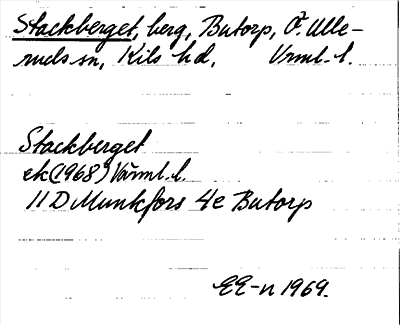 Stackberget, berg, Butorp, Ö. Ulle-
ruds sn, Kils hd, Vrml. l.
Stackberget
ek (1968) Värml. l.
11 D Munkfors 4e Butorp
EE-n 1969.